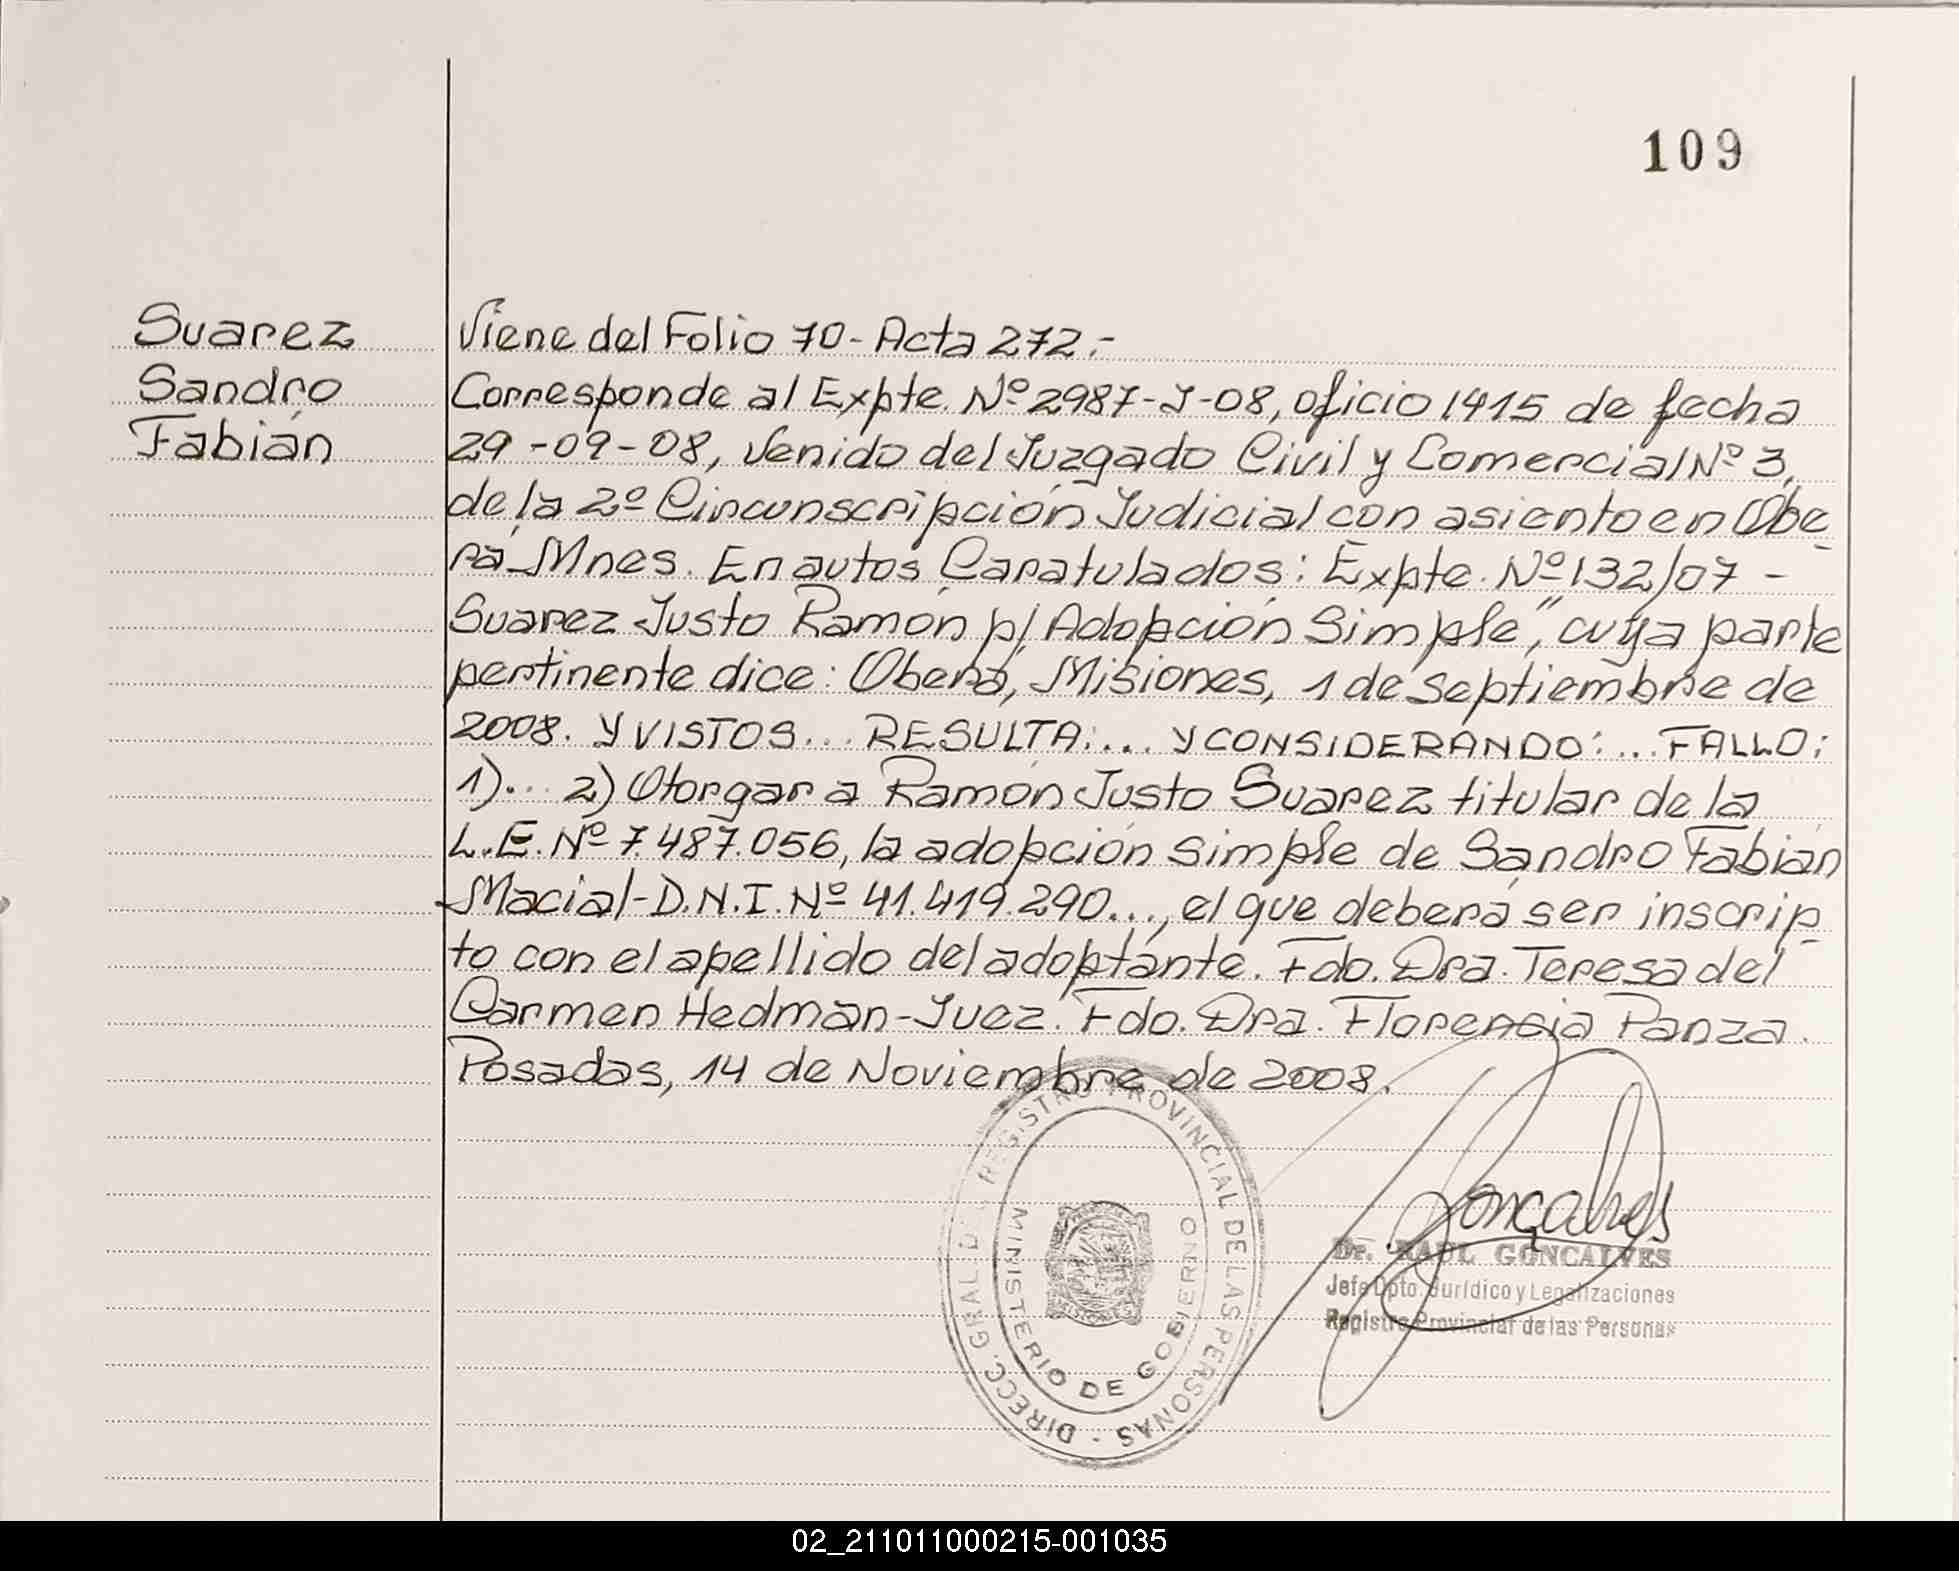 109
Suarez
Sandro
Fabián
Viene del Folio 70- Acta 272.-
Corresponde al Expte. Nº 2987-J-08, oficio 1415 de fecha
29-09-08, Venido del Juzgado Civil y Comercial Nº 3,
de la 2º Circunscripción Judicial con asiento en Obe-
rá_Mnes. En autos Caratulados: Expte. Nº 132/07 -
Suarez Justo Ramón p/ Adopción Simple", cuya parte
pertinente dice: Oberá, Misiones, 1 de Septiembre de
2008. Y VISTOS... RESULTA:... Y CONSIDERANDO:... FALLO:
1)... 2) Otorgar a Ramón Justo Suarez titular de la
L.E. Nº 7.487.056, la adopción simple de Sandro Fabián
Macial-D.N.I. Nº 41.419.290..., el que deberá ser inscrip-
to con el apellido del adoptante. Fdo. Dra. Teresa del
Carmen Hedman-Juez. Fdo. Dra. Florencia Panza.
Posadas, 14 de Noviembre de 2008.
DIRECC. GRAL DEL REGISTRO PROVINCIAL DE LAS PERSONAS -
MINISTERIO DE GOBIERNO
Goncalves
Dr. RAUL GONCALVES
Jefe Dpto. Jurídico y Legalizaciones
Registro Provincial de las Personas
02_211011000215-001035